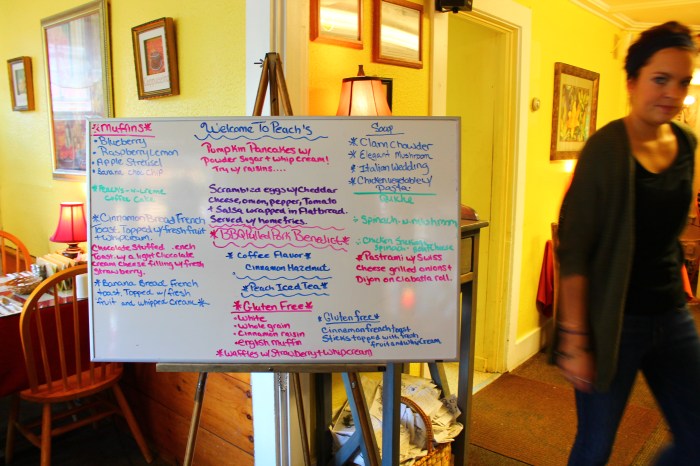 Welcome To Peach's
*Muffins*
• Blueberry
• Raspberry Lemon
• Apple Streusel
• Banana Choc Chip
Coffee Cake
*Cinnamon Bread French
Toast. Topped w/ fresh fruit
+ whip cream.
Chocolate Stuffed
Toast w/ a light Chocolate
Cream Cheese filling w/ fresh
Strawberry.
*Banana Bread French
toast, Topped w/ fresh
fruit and whipped Cream*
Pumpkin Pancakes w/
Powder Sugar + Whip Cream!
Try w/ raisins....
Scrambled eggs w/ Cheddar
Cheese, onion, pepper, Tomato
+ Salsa wrapped in Flatbread.
Served w/ homefries.
*BBQ Pulled Pork Benedict*
* Coffee Flavor *
Cinnamon Hazelnut
*Peach Iced Tea*
*Gluten Free*
• White
• Whole grain
• Cinnamon raisin
• English Muffin
*Waffles w/ Strawberry + Whip cream
Soup
* Clam Chowder
* Elegant Mushroom
* Italian Wedding
* Chicken vegetable w/
Pasta
Quiche
Spinach w/ mushroom
Chicken
Spinach
*Pastrami w/ Swiss
Cheese grilled onions +
Dijon on Ciabatta roll.
*Gluten free*
Cinnamon french toast
Sticks topped with fresh
fruit and whip cream